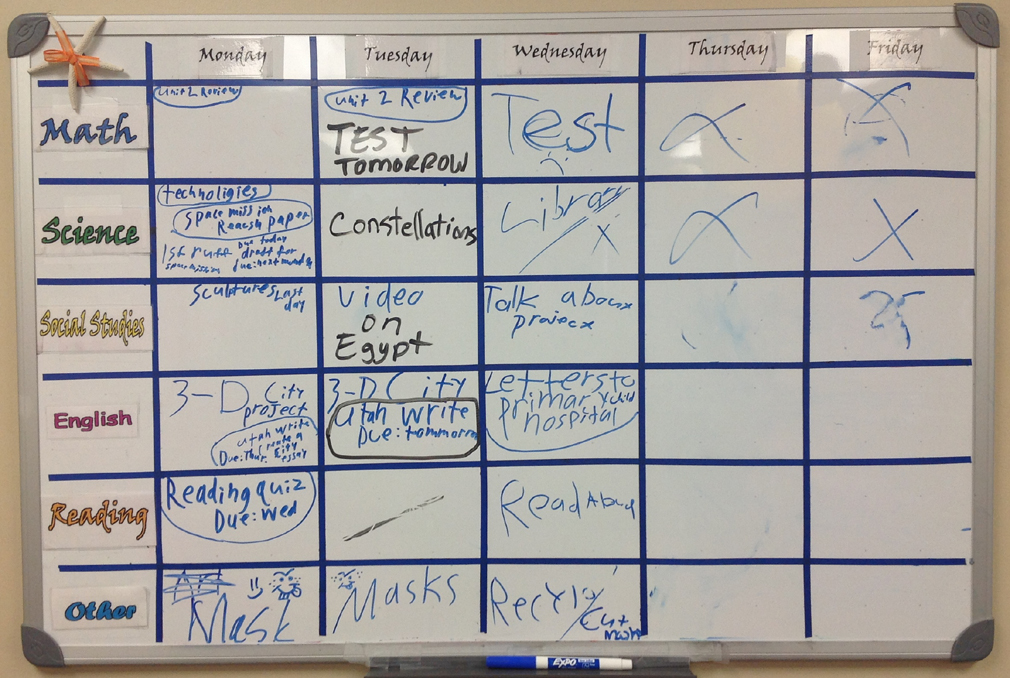 Monday Tuesday Wednesday Thursday Friday
Math
Unit 2 Review
Unit 2 Review
TEST
TOMORROW
Test
Science
technoligies
Space mission
Reaesh paper
Due today
1st ruff draft for
spacemission due: next monday
Constellations
Library
X
X
Social Studies
Sculptures Last
day
Video
on
Egypt
Talk about
project
English
3-D City
project
utah write
Create a
Due: Thur. City
essay
3-D City
Utah Write
Due: tommorrow
Letters to
primary
hospital
Reading
Reading quiz
Due: Wed
Read
Other
Mask
Masks
Recycly
Cut
EXPO